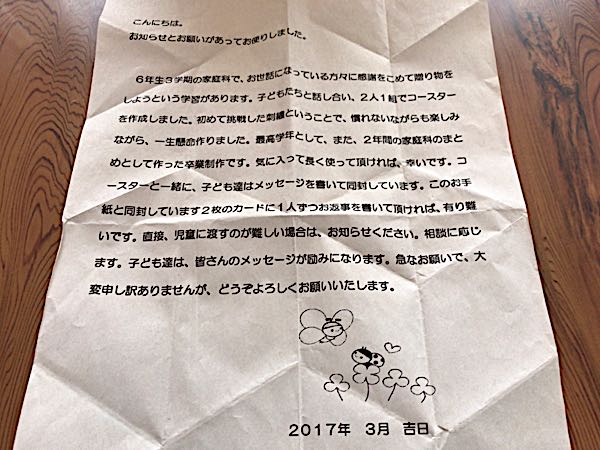 こんにちは。
お知らせとお願いがあってお便りしました。
６年生３学期の家庭科で、お世話になっている方々に感謝をこめて贈り物を
しようという学習があります。子どもたちと話し合い、２人１組でコースター
を作成しました。初めて挑戦した刺繍ということで、慣れないながらも楽しみ
ながら、一生懸命作りました。最高学年として、また、２年間の家庭科のまと
めとして作った卒業制作です。気に入って長く使って頂ければ、幸いです。コ
ースターと一緒に、子ども達はメッセージを書いて同封しています。このお手
紙と同封しています２枚のカードに１人ずつお返事を書いて頂ければ、有り難
いです。直接、児童に渡すのが難しい場合は、お知らせください。相談に応じ
ます。子ども達は、皆さんのメッセージが励みになります。急なお願いで、大
変申し訳ありませんが、どうぞよろしくお願いいたします。
２０１７年　３月　吉日